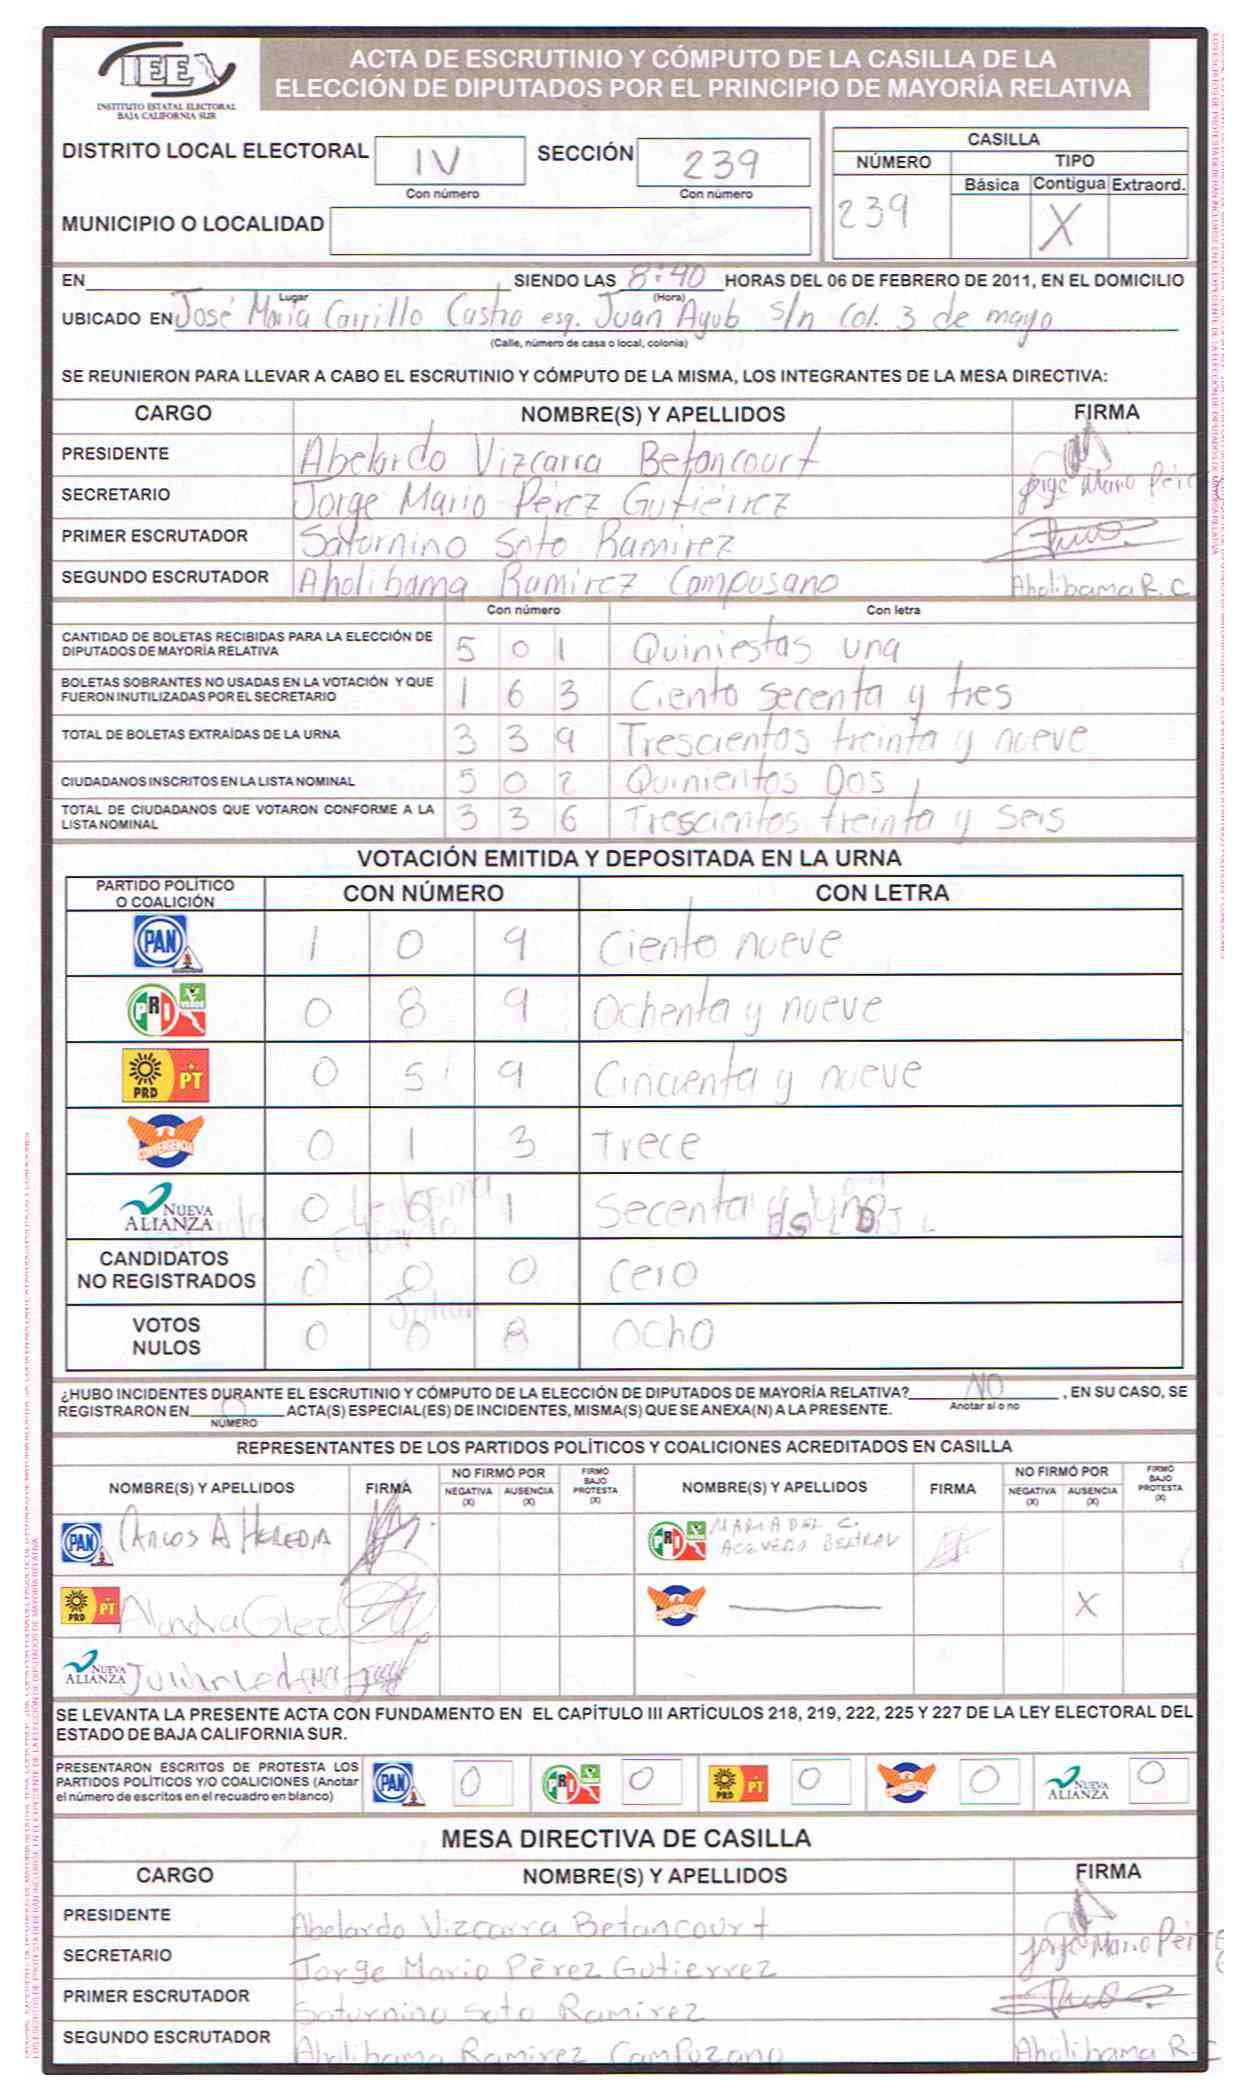 IEE
INSTITUTO ESTATAL ELECTORAL
BAJA CALIFORNIA SUR
ACTA DE ESCRUTINIO Y CÓMPUTO DE LA CASILLA DE LA
ELECCIÓN DE DIPUTADOS POR EL PRINCIPIO DE MAYORÍA RELATIVA
DISTRITO LOCAL ELECTORAL IV SECCIÓN 239
Con número Con número
CASILLA
NÚMERO TIPO
Básica Contigua Extraord.
239 X
MUNICIPIO O LOCALIDAD
EN SIENDO LAS 8:40 HORAS DEL 06 DE FEBRERO DE 2011, EN EL DOMICILIO
Lugar (Hora)
UBICADO EN José María Carrillo Castro esq. Juan Ayub s/n Col. 3 de mayo
(Calle, número de casa o local, colonia)
SE REUNIERON PARA LLEVAR A CABO EL ESCRUTINIO Y CÓMPUTO DE LA MISMA, LOS INTEGRANTES DE LA MESA DIRECTIVA:
CARGO NOMBRE(S) Y APELLIDOS FIRMA
PRESIDENTE Abelardo Vizcarra Betancourt
SECRETARIO Jorge Mario Pérez Gutiérrez Jorge Mario Pérez
PRIMER ESCRUTADOR Saturnino Soto Ramirez
SEGUNDO ESCRUTADOR Aholibama Ramirez Campusano Aholibama R. C
Con número Con letra
CANTIDAD DE BOLETAS RECIBIDAS PARA LA ELECCIÓN DE
DIPUTADOS DE MAYORÍA RELATIVA 5 0 1 Quiniestas una
BOLETAS SOBRANTES NO USADAS EN LA VOTACIÓN Y QUE
FUERON INUTILIZADAS POR EL SECRETARIO 1 6 3 Ciento secenta y tres
TOTAL DE BOLETAS EXTRAÍDAS DE LA URNA 3 3 9 Trescientos treinta y nueve
CIUDADANOS INSCRITOS EN LA LISTA NOMINAL 5 0 2 Quinientos Dos
TOTAL DE CIUDADANOS QUE VOTARON CONFORME A LA
LISTA NOMINAL 3 3 6 Trescientos treinta y Seis
VOTACIÓN EMITIDA Y DEPOSITADA EN LA URNA
PARTIDO POLÍTICO
O COALICIÓN CON NÚMERO CON LETRA
PAN 1 0 9 Ciento nueve
PRI VERDE 0 8 9 Ochenta y nueve
PRD PT 0 5 9 Cincuenta y nueve
CONVERGENCIA 0 1 3 Trece
NUEVA ALIANZA 0 6 1 Secenta y uno
CANDIDATOS
NO REGISTRADOS 0 0 0 cero
VOTOS
NULOS 0 0 8 ocho
¿HUBO INCIDENTES DURANTE EL ESCRUTINIO Y CÓMPUTO DE LA ELECCIÓN DE DIPUTADOS DE MAYORÍA RELATIVA? NO , EN SU CASO, SE
Anotar sí o no
REGISTRARON EN 0 ACTA(S) ESPECIAL(ES) DE INCIDENTES, MISMA(S) QUE SE ANEXA(N) A LA PRESENTE.
NÚMERO
REPRESENTANTES DE LOS PARTIDOS POLÍTICOS Y COALICIONES ACREDITADOS EN CASILLA
NOMBRE(S) Y APELLIDOS FIRMA NO FIRMÓ POR NEGATIVA (X) AUSENCIA (X) FIRMÓ BAJO PROTESTA (X) NOMBRE(S) Y APELLIDOS FIRMA NO FIRMÓ POR NEGATIVA (X) AUSENCIA (X) FIRMÓ BAJO PROTESTA (X)
PAN Carlos A Heredia PRI MARIA DEL C.
ACEVEDO BELTRAN
PRD PT Glez X
NUEVA ALIANZA Julian Ledesma
SE LEVANTA LA PRESENTE ACTA CON FUNDAMENTO EN EL CAPÍTULO III ARTÍCULOS 218, 219, 222, 225 Y 227 DE LA LEY ELECTORAL DEL
ESTADO DE BAJA CALIFORNIA SUR.
PRESENTARON ESCRITOS DE PROTESTA LOS
PARTIDOS POLÍTICOS Y/O COALICIONES (Anotar
el número de escritos en el recuadro en blanco)
PAN 0 PRI 0 PRD PT 0 CONVERGENCIA 0 NUEVA ALIANZA 0
MESA DIRECTIVA DE CASILLA
CARGO NOMBRE(S) Y APELLIDOS FIRMA
PRESIDENTE Abelardo Vizcarra Betancourt
SECRETARIO Jorge Mario Pérez Gutierrez Jorge Mario Pérez
PRIMER ESCRUTADOR Saturnino Soto Ramirez
SEGUNDO ESCRUTADOR Aholibama Ramirez Campuzano Aholibama R. C